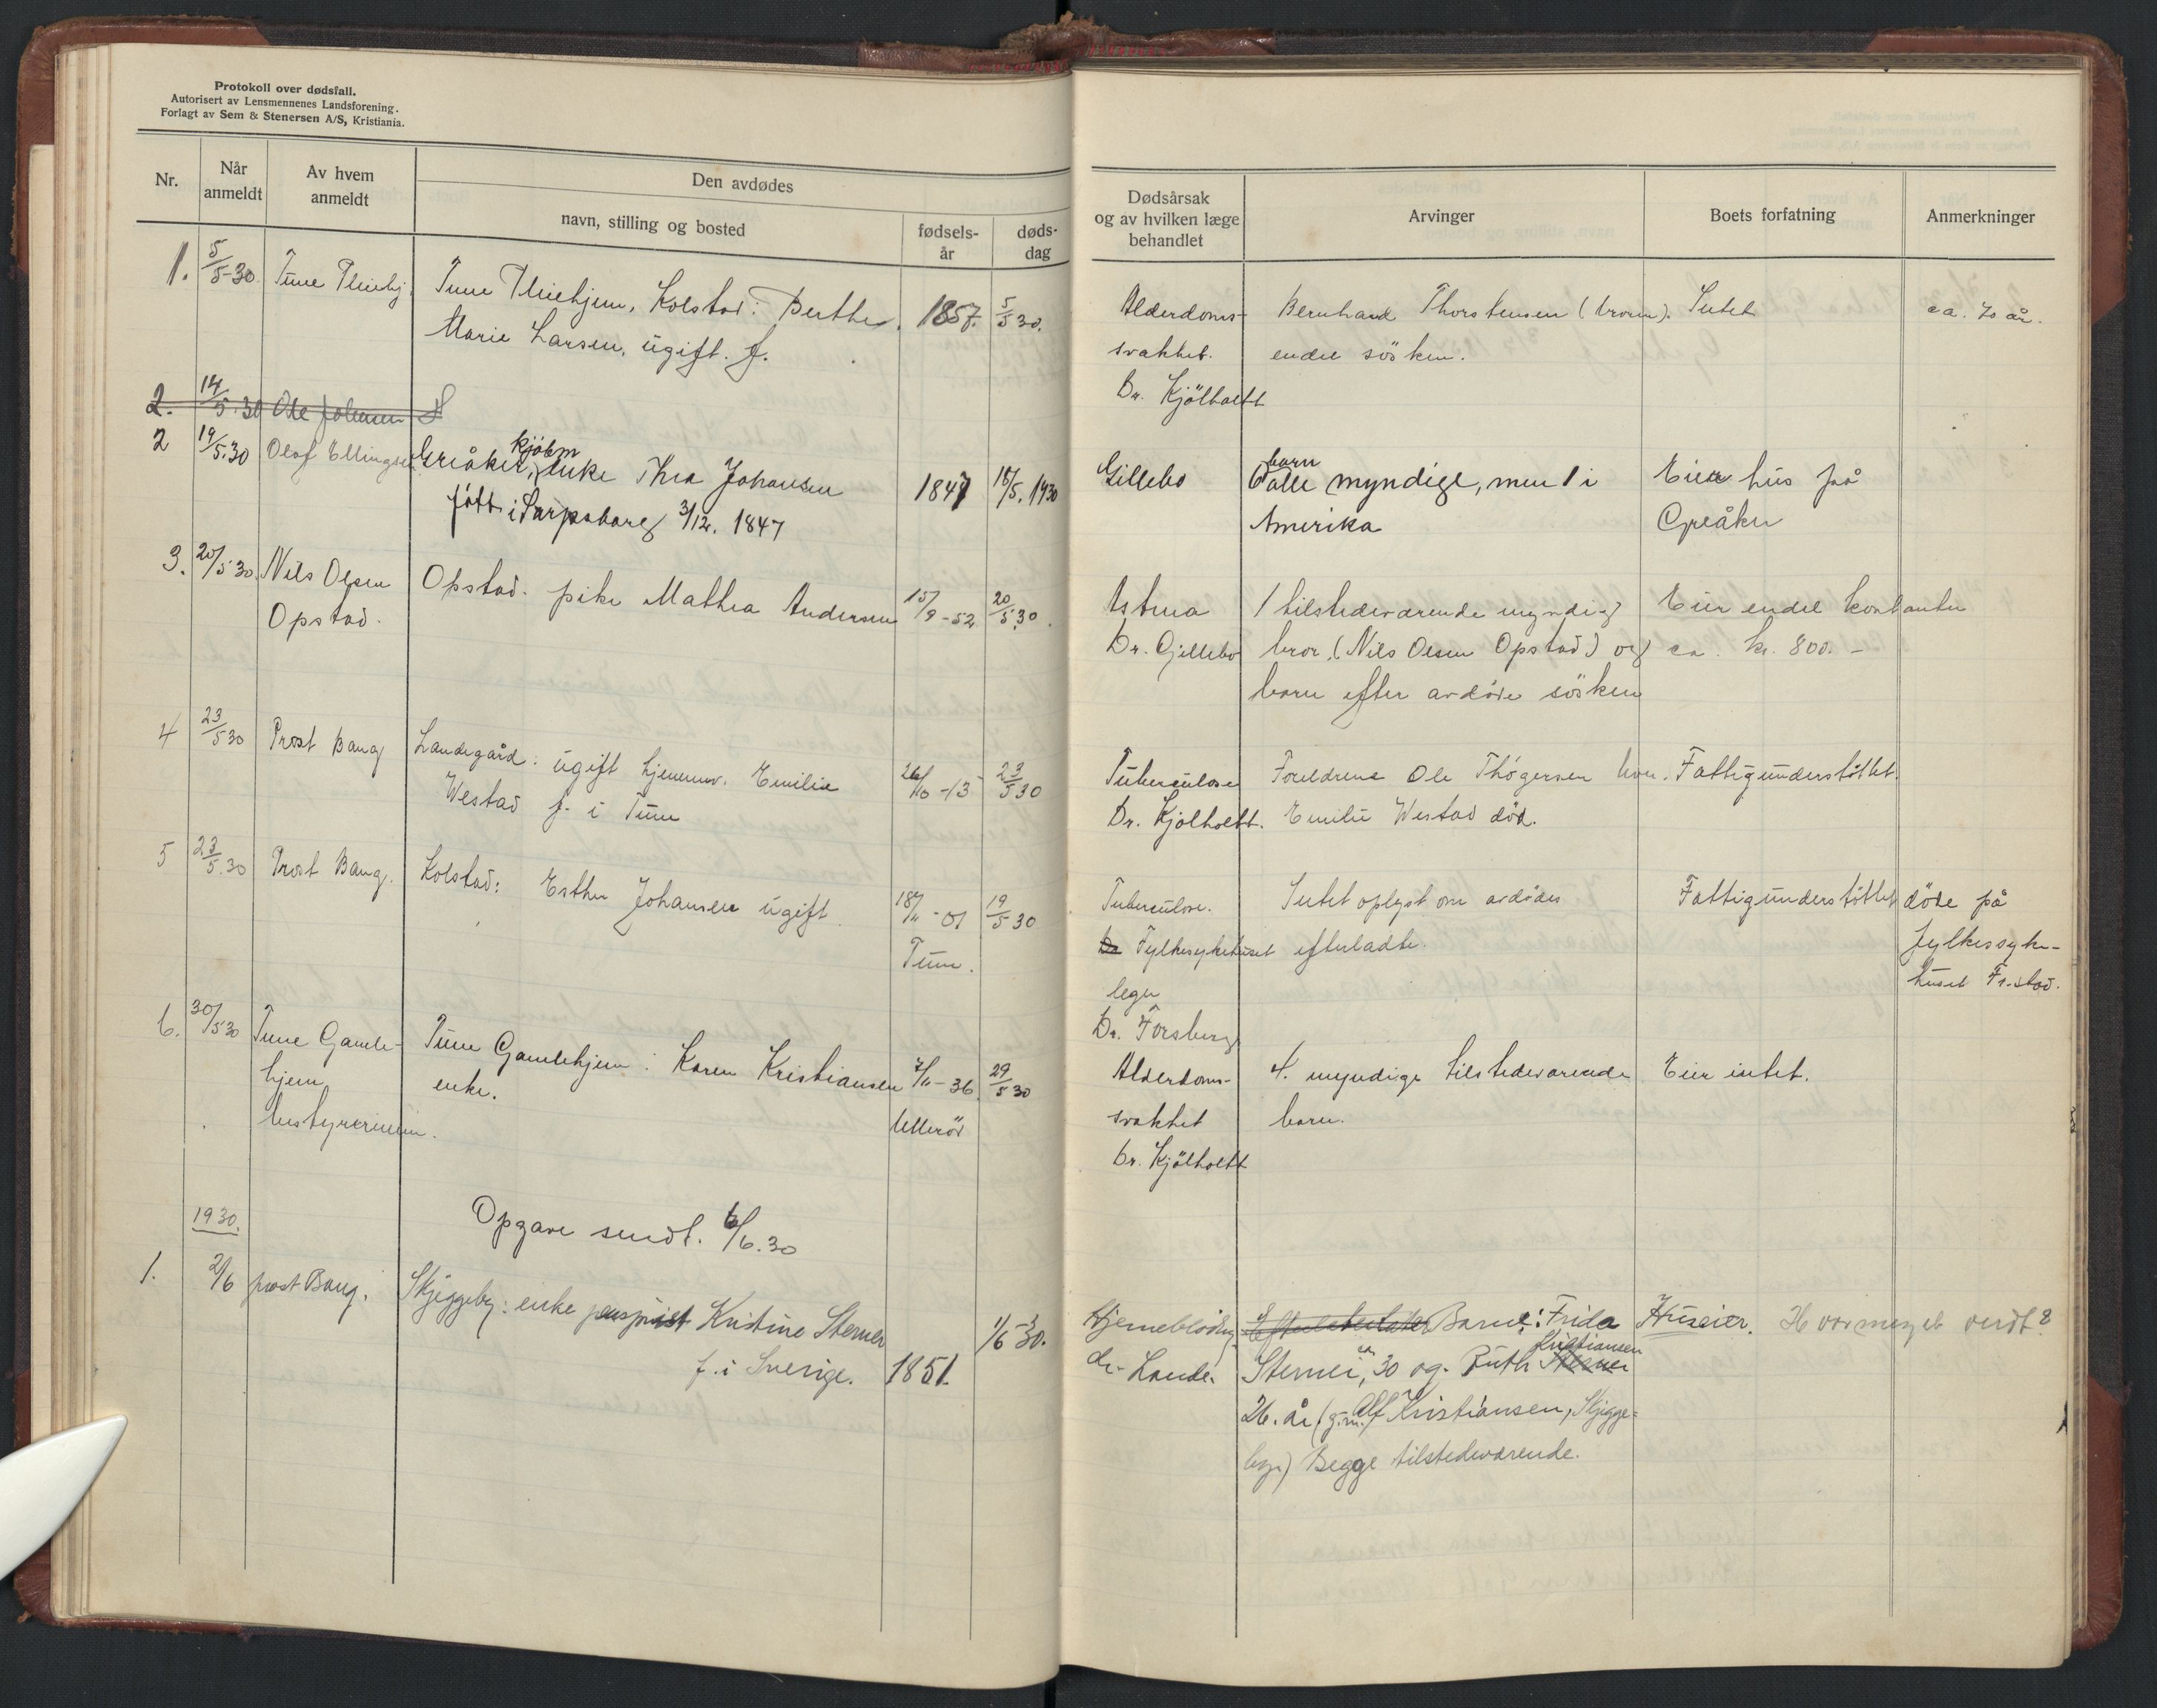 Protokoll over dødsfall.
Autorisert av Lensmennenes Landsforening.
Forlagt av Sem & Stenersen A/S, Kristiania.
Nr.
Når anmeldt
Av hvem anmeldt
Den avdødes
navn, stilling og bosted
fødsels-år
døds-dag
Dødsårsak og av hvilken læge behandlet
Arvinger
Boets forfatning
Anmerkninger
1. 5/5-30 Tune Pleiehj. Tune Pleiehjem, Kolstad: Berthe 1857. 5/5 30.
Marie Larsen, ugift. f.
Alderdoms- Bernhard Thorstensen (bror). Intet ca. 70 år.
svakhet. endel søsken.
Dr. Kjölholtt
2. 14/5.30 Ole Johansen
2 19/5.30 Olaf Ellingsen Greåker, kjöbm enke Thea Johansen 1847 18/5. 1930
født i Sarpsborg 3/12. 1847
Gillebo 6 barn alle myndige, men 1 i Eier hus på
Amerika Greåker
3. 20/5 30. Nils Olsen Opstad. pike Mathea Andersen 15/9-52 20/5.30.
Opstad.
Astma 1 tilstedeværende myndig Eier endel kontanter
Dr. Gjellebo bror, (Nils Olsen Opstad) og ca. kr. 800.-
barn efter avdöde sösken
4 23/5 30 Prost Bang Landegård: ugift hjemmev. Emilie 26/10-13 23/5 30
Westad f. i Tune
Tuberculose Foreldrene Ole Thögersen hvor. Fattigunderstöttet.
Dr. Kjölholtt. Emilie Westad död.
5 23/5.30 Prost Bang. Kolstad: Esther Johansen ugift 18/11-01 19/5 30
Tune.
Tuberculose. Intet oplyst om avdödes Fattigunderstöttet döde på
Dr Fylkesykehuset efterladte. fylkessyke-
leger huset Fr.stad.
Dr. Forsberg
6. 30/5 30 Tune Gamle- Tune Gamlehjem: Karen Kristiansen 7/11-36 29/5 30
hjem enke. Ullerøi
bestyrerinnen.
Alderdoms- 4. myndige tilstedeværende Eier intet.
svakhet barn.
Dr. Kjölholtt
1930.
Opgave sendt. 6/6.30
1. 2/6 prost Bang. Skjeggeby: enke Kristine Sterner 1/6-30.
f. i Sverige. 1851.
Hjerneblödn. Barn: Frida Huseier. Hvor meget verdt?
dr. Lande. Sterner, ca 30 og Ruth Sterner Kristiansen
26. år (g.m. Alf Kristiansen, Skjegge-
by.) Begge tilstedeværende.